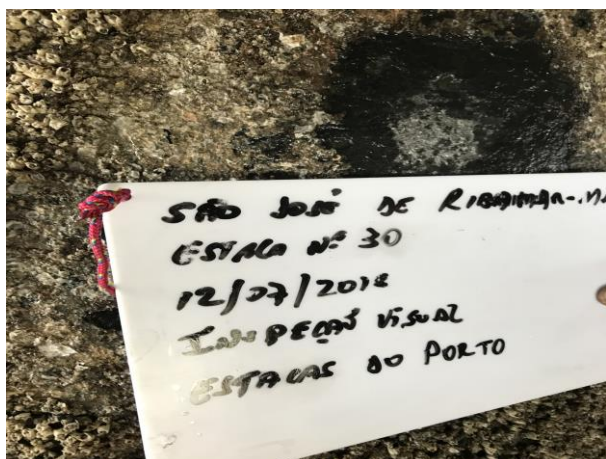 SÃO JOSÉ DE RIBAMAR-MA
ESTACA Nº 30
12/07/2018
INSPEÇÃO VISUAL
ESTACAS DO PORTO